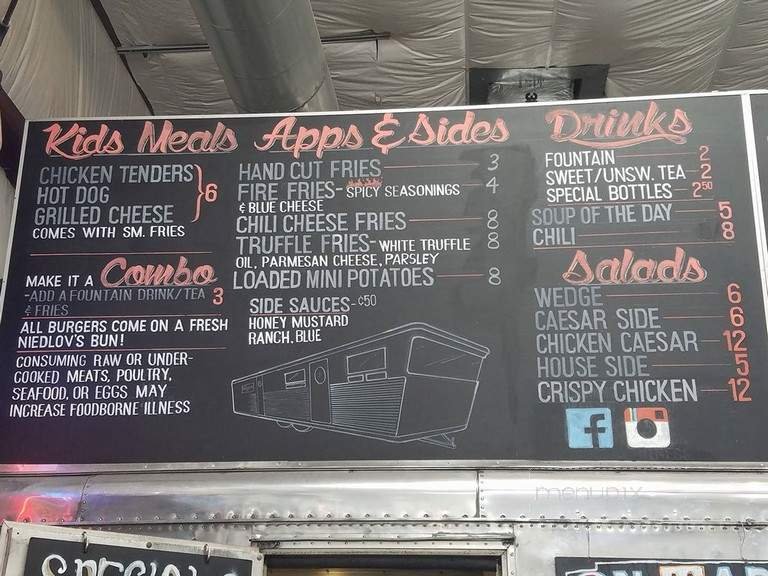 Kids Meals
CHICKEN TENDERS
HOT DOG
GRILLED CHEESE
6
COMES WITH SM. FRIES
MAKE IT A Combo
-ADD A FOUNTAIN DRINK/TEA 3
& FRIES
ALL BURGERS COME ON A FRESH
NIEDLOV'S BUN!
CONSUMING RAW OR UNDER-
COOKED MEATS, POULTRY,
SEAFOOD, OR EGGS MAY
INCREASE FOODBORNE ILLNESS
Apps & Sides
HAND CUT FRIES 3
FIRE FRIES-SPICY SEASONINGS 4
& BLUE CHEESE
CHILI CHEESE FRIES 8
TRUFFLE FRIES-WHITE TRUFFLE 8
OIL, PARMESAN CHEESE, PARSLEY
LOADED MINI POTATOES 8
SIDE SAUCES-¢50
HONEY MUSTARD
RANCH, BLUE
Drinks
FOUNTAIN 2
SWEET/UNSW. TEA 2
SPECIAL BOTTLES 2 50
SOUP OF THE DAY 5
CHILI 8
Salads
WEDGE 6
CAESAR SIDE 6
CHICKEN CAESAR 12
HOUSE SIDE 5
CRISPY CHICKEN 12
f
menupix